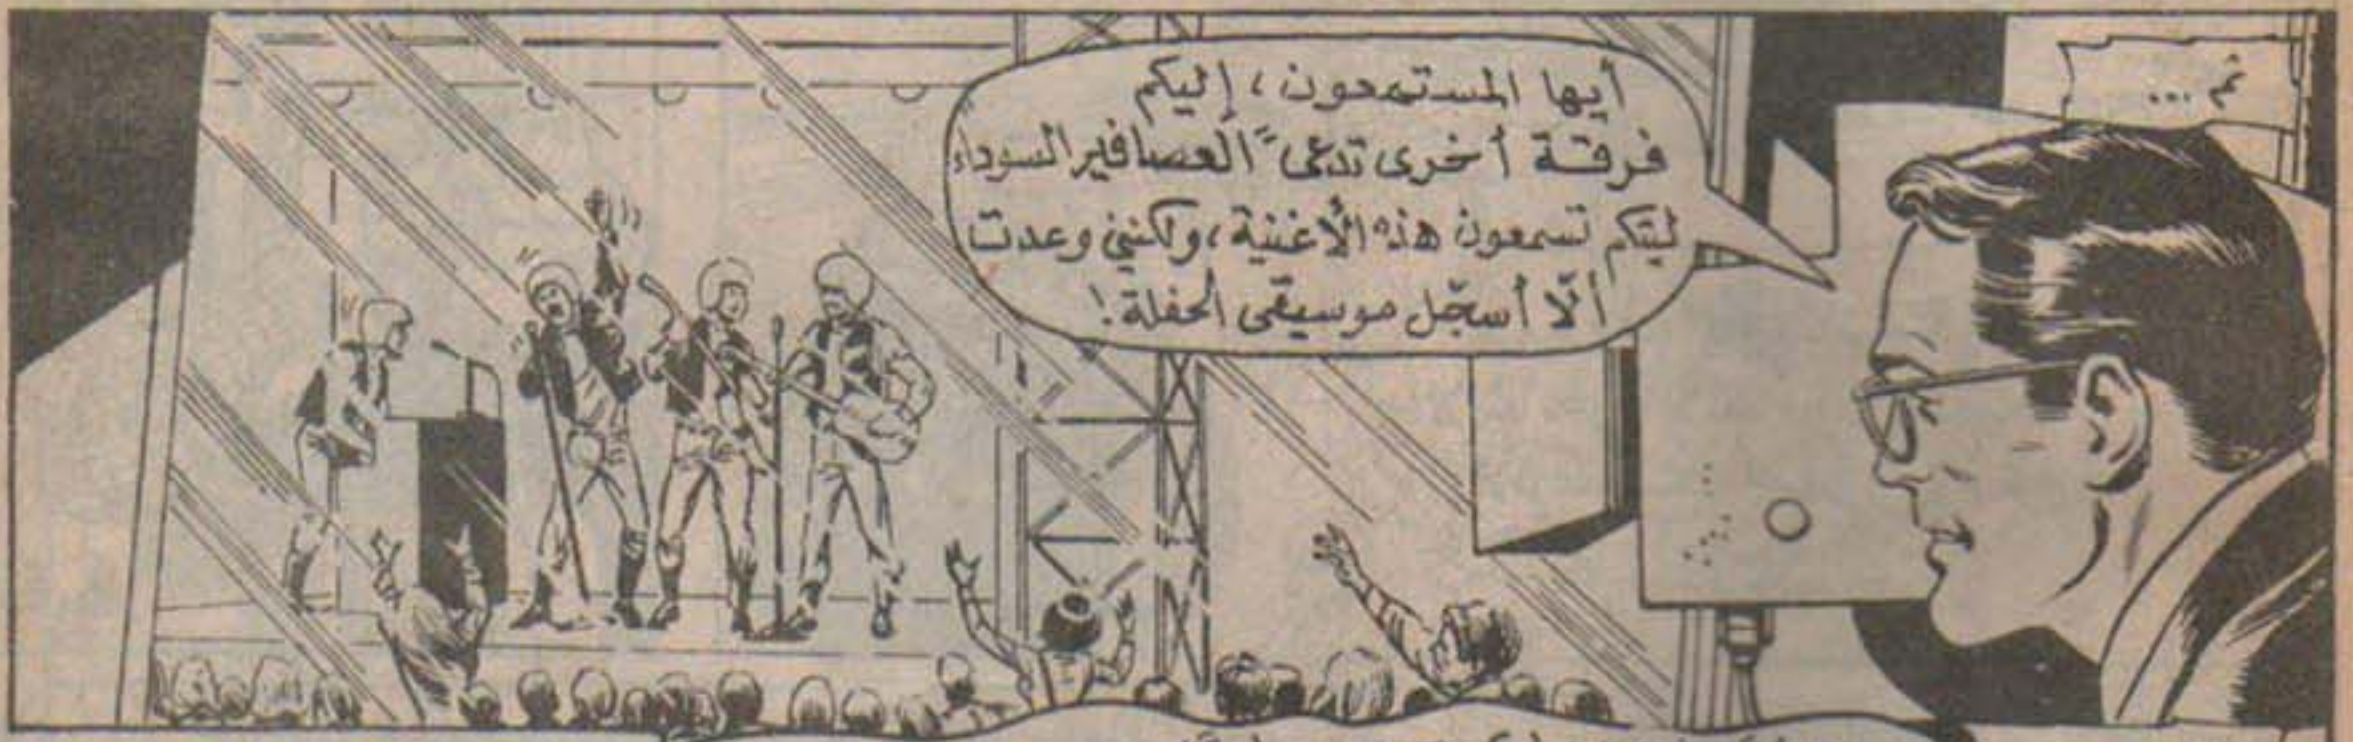 ثم ...
أيها المستمعون، إليكم
فرقة أخرى تدعى "العصافير السوداء
ليتكم تسمعون هذه الأغنية، ولكنني وعدت
ألّا أسجّل موسيقى الحفلة!